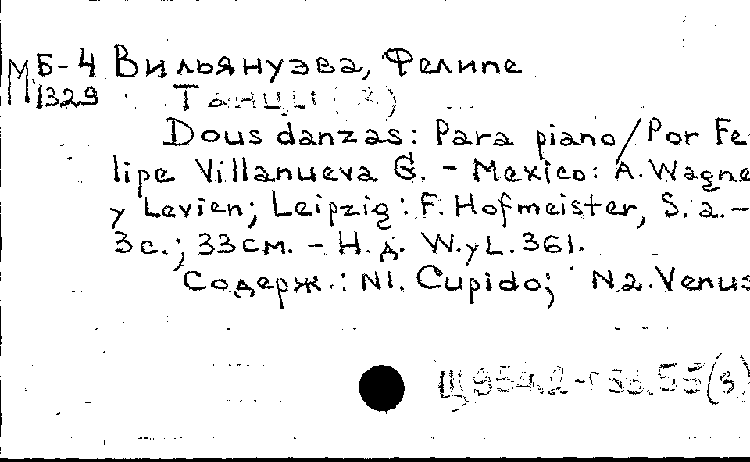 М Б-4 Вильянуэва, Фелипе
1329 Танцы (2)
Dous danzas: Para piano/Por Fe-
lipe Villanueva G. - Mexico: A. Wagne
y Levien; Leipzig: F. Hofmeister, S. a. -
3 с.; 33 см. - Н. д. W. y L. 361.
Содерж.: N1. Cupido; N2. Venus
Щ954.2-